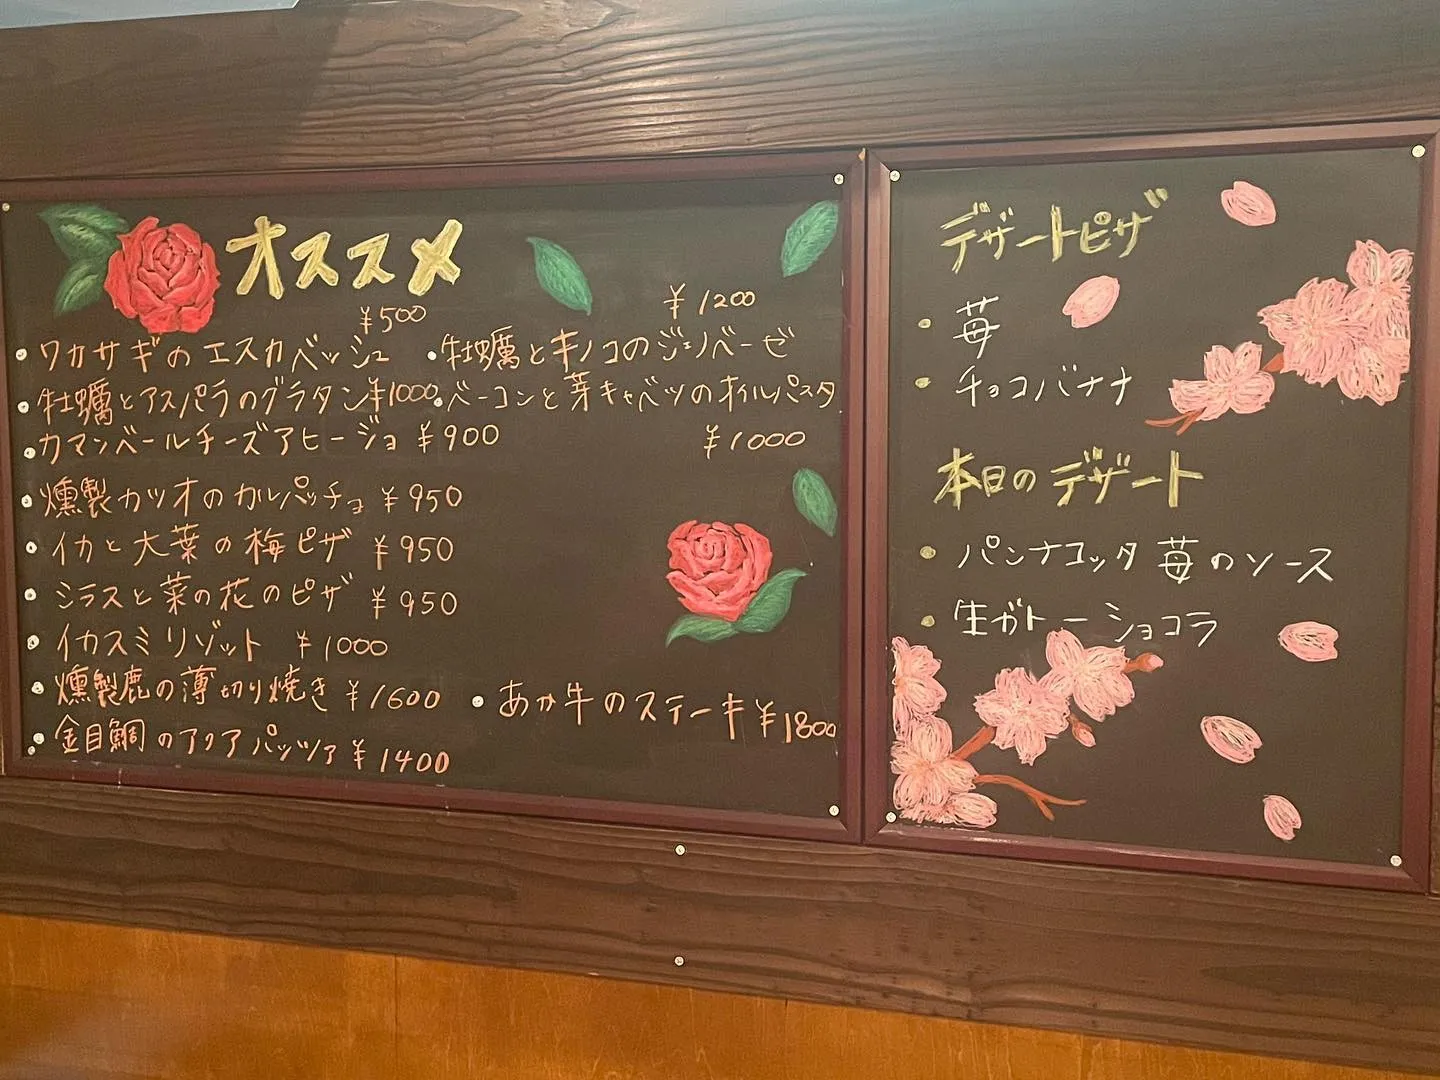 オススメ
¥500
・ワカサギのエスカベッシュ
・牡蠣とアスパラのグラタン¥1000
・カマンベールチーズアヒージョ ¥900
・燻製カツオのカルパッチョ ¥950
・イカと大葉の梅ピザ ¥950
・シラスと菜の花のピザ ¥950
・イカスミリゾット ¥1000
・燻製鹿の薄切り焼き ¥1600
・金目鯛のアクアパッツァ ¥1400
¥1200
・牡蠣とキノコのジェノベーゼ
・ベーコンと芽キャベツのオイルパスタ
¥1000
・あか牛のステーキ ¥1800
デザートピザ
・苺
・チョコバナナ
本日のデザート
・パンナコッタ 苺のソース
・生ガトーショコラ